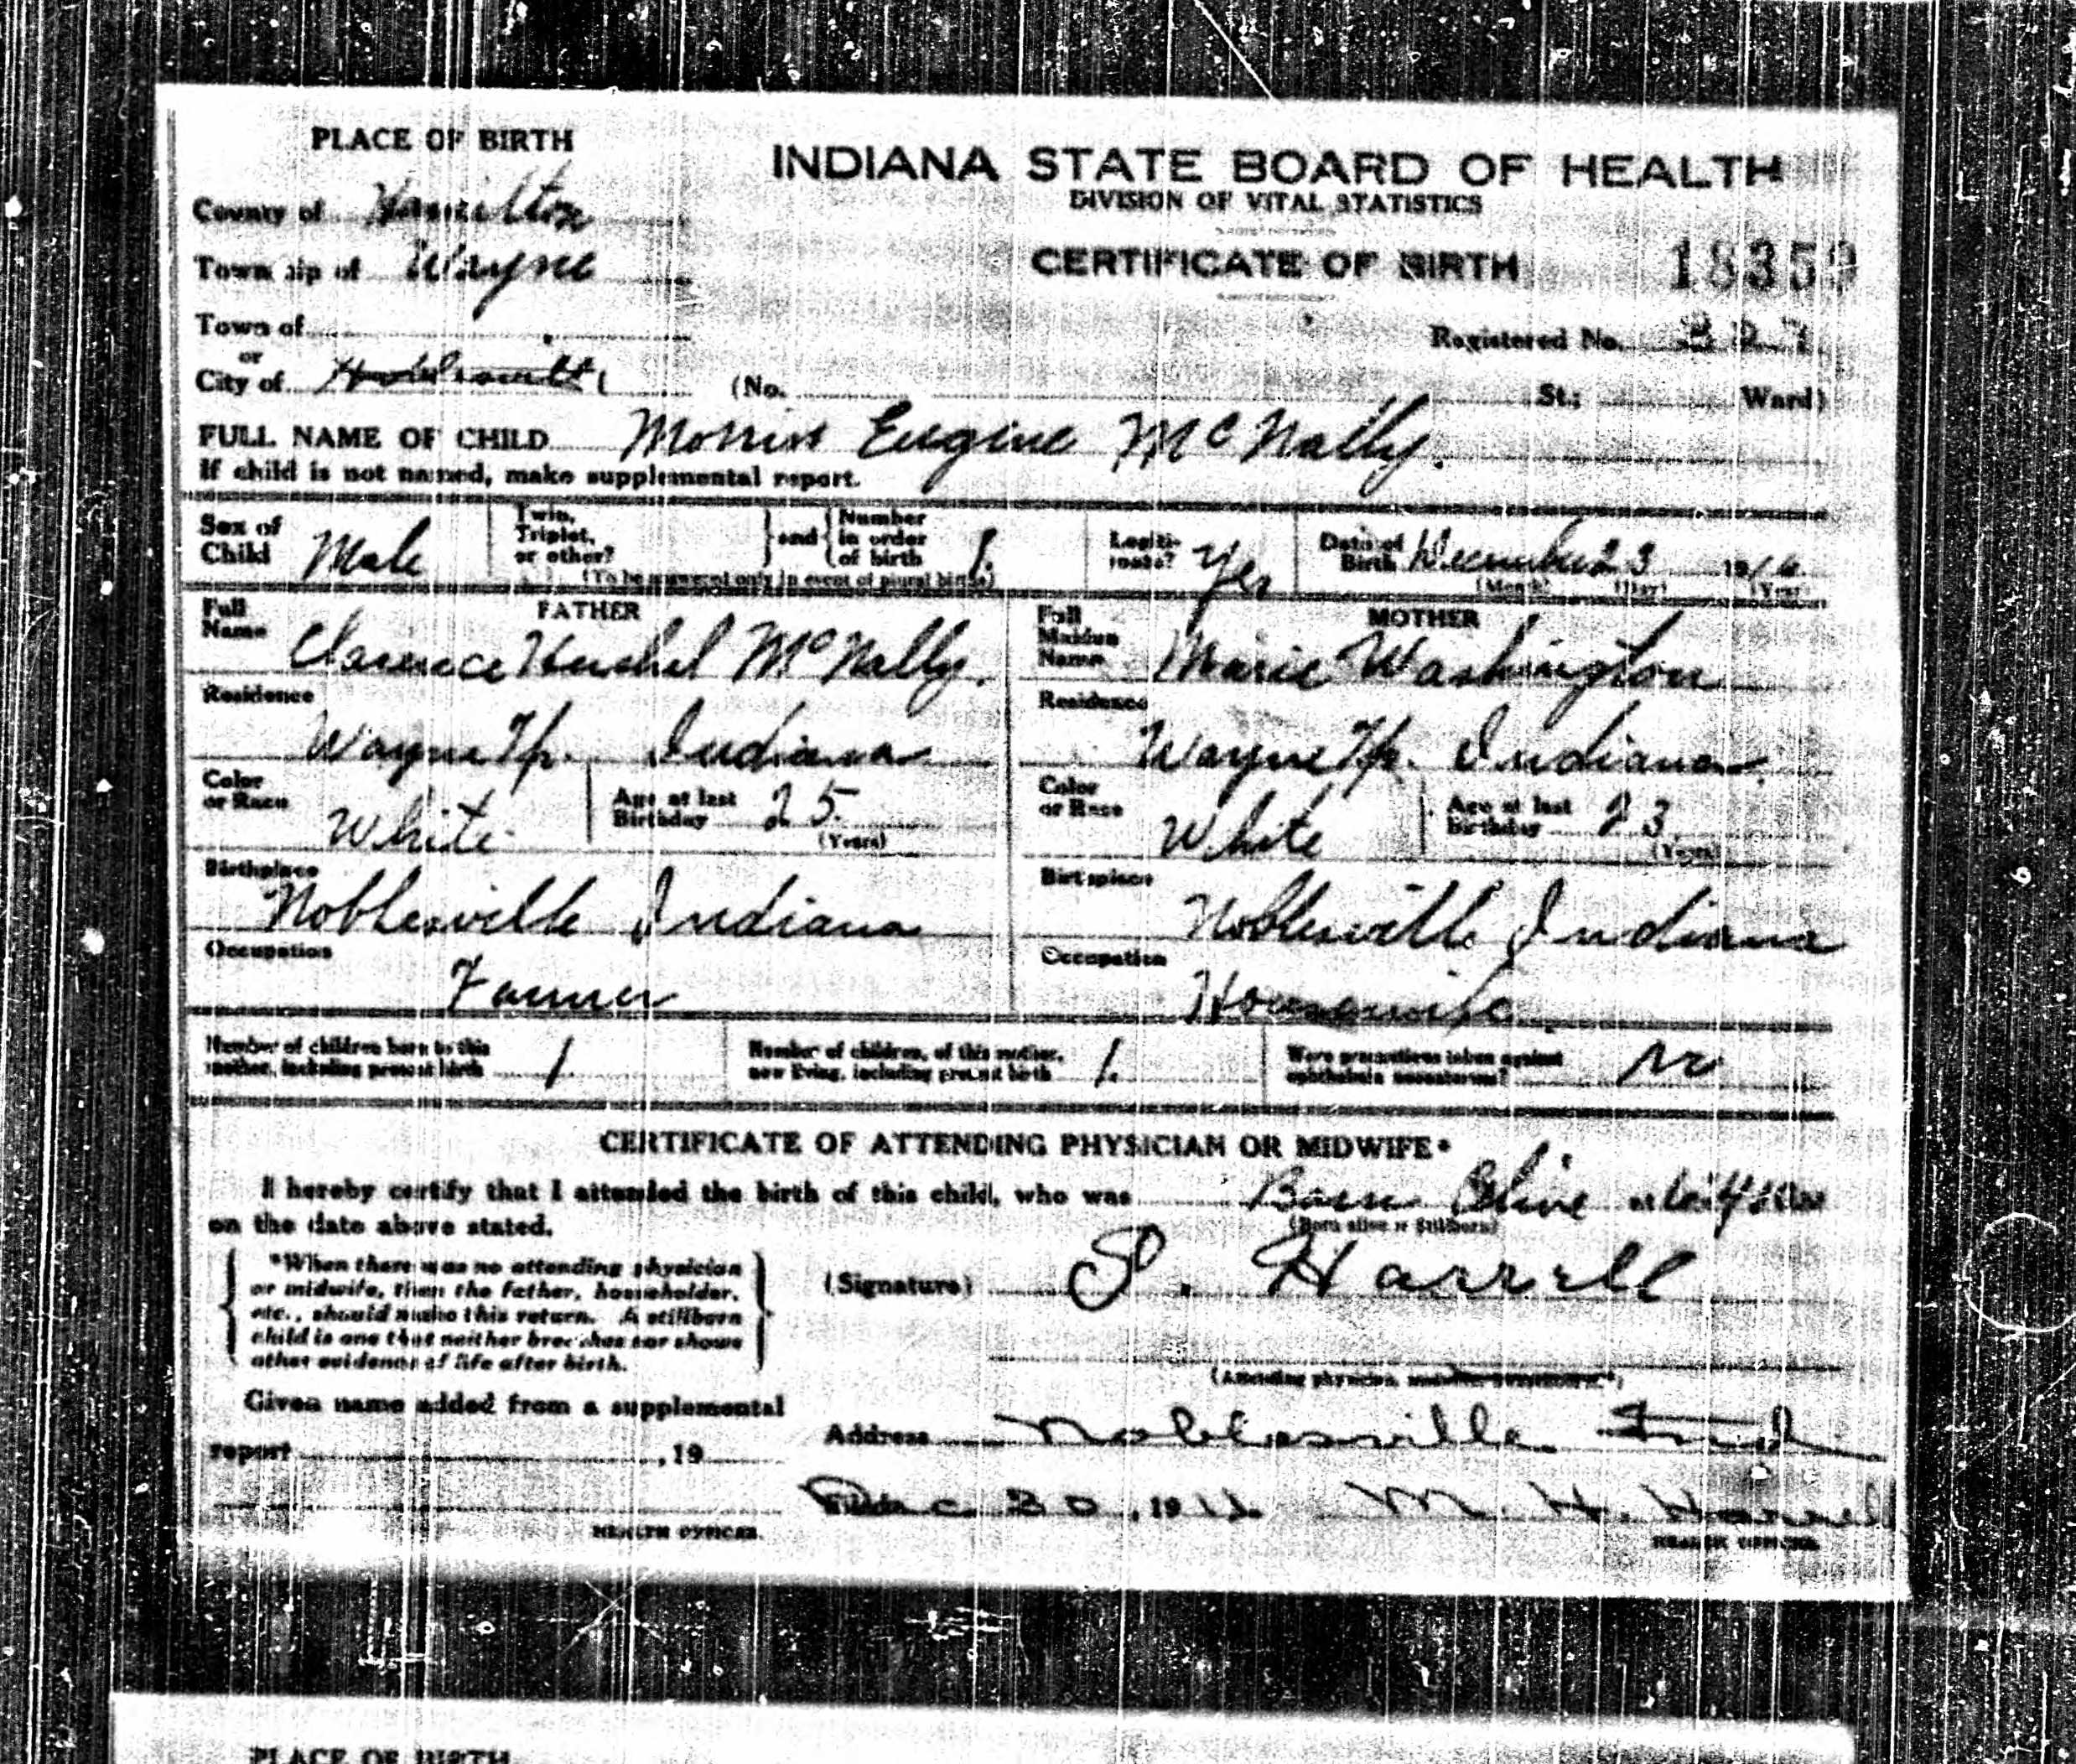 PLACE OF BIRTH
INDIANA STATE BOARD OF HEALTH
DIVISION OF VITAL STATISTICS
County of Hamilton
CERTIFICATE OF BIRTH 18359
Township of Wayne
Town of
Registered No. 327
or
City of (No. St.; Ward)
FULL NAME OF CHILD Morris Eugine McNally.
If child is not named, make supplemental report.
Sex of Child Male
Twin, Triplet, or other?
and Number in order of birth 1.
(To be answered only in event of plural births)
Legiti-mate? Yes
Date of Birth December 23 19
(Month) (Day) (Year)
FATHER
Full Name Clarence Hershel McNally.
MOTHER
Full Maiden Name Marie Washington
Residence Wayne Tp. Indiana
Residence Wayne Tp. Indiana
Color or Race White
Age at last Birthday 25
(Years)
Color or Race White
Age at last Birthday 23
(Years)
Birthplace Noblesville Indiana
Birthplace Noblesville Indiana
Occupation Farmer
Occupation Housewife
Number of children born to this mother, including present birth 1.
Number of children, of this mother, now living, including present birth 1.
Were precautions taken against ophthalmia neonatorum? No
CERTIFICATE OF ATTENDING PHYSICIAN OR MIDWIFE*
I hereby certify that I attended the birth of this child, who was Born Alive at
(Born alive or Stillborn)
on the date above stated.
*When there was no attending physician
or midwife, then the father, householder,
etc., should make this return. A stillborn
child is one that neither breathes nor shows
other evidence of life after birth.
(Signature) S. Harrell
(Attending physician,
Given name added from a supplemental
report , 19
Address Noblesville Ind
Dec 30, 19 M. H. Harrell
HEALTH OFFICER.
HEALTH OFFICER.
PLACE OF BIRTH